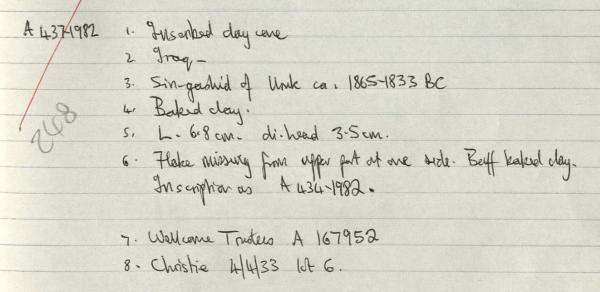 A 437-1982 1. Inscribed clay cone
2 Iraq -
3. Sin-gashid of Uruk ca. 1865-1833 BC
4. Baked clay.
5, L. 6.8 cm. di. head 3.5 cm.
6. Flake missing from upper part at one side. Buff baked clay.
Inscription as A 434-1982.
248
7. Wellcome Trustees A 167952
8. Christie 4/4/33 lot 6.